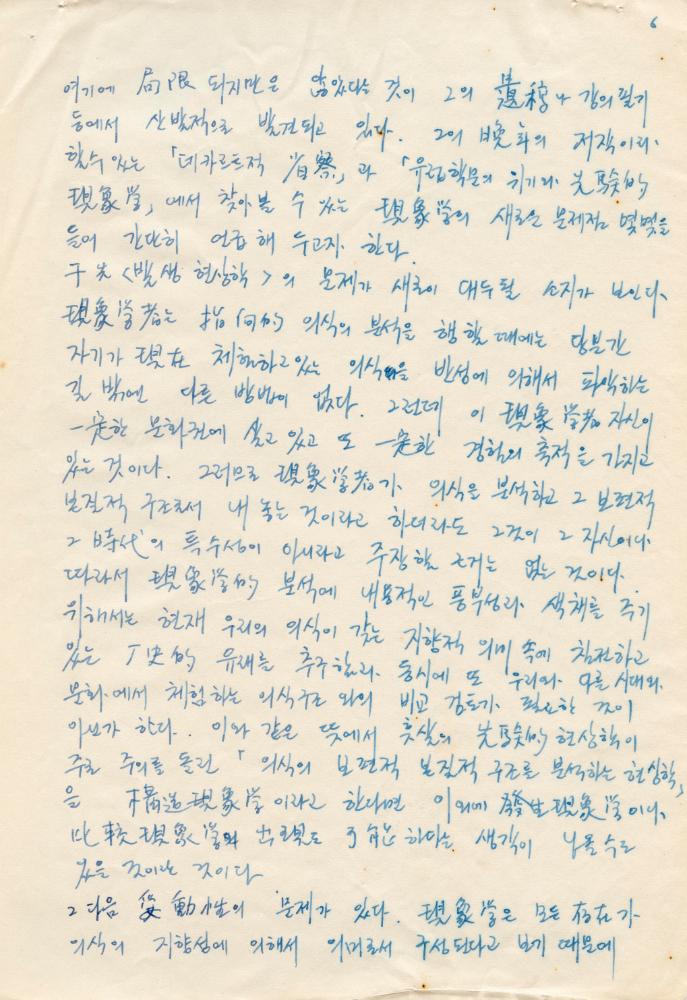 6
여기에 局限 되지만은 않았다는 것이 그의 遺稿나 강의 필기
등에서 산발적으로 발견되고 있다. 그의 晩年의 저작이라
할 수 있는 「데카르트적 省察」과 「유럽학문의 위기와 先驗的
現象学」에서 찾아볼 수 있는 現象学의 새로운 문제점 몇몇을
들어 간단히 언급해 두고자 한다.
于先 <발생 현상학>의 문제가 새로이 대두될 소지가 보인다.
現象学者는 指向的 의식의 분석을 행할 때에는 당분간
자기가 現在 체험하고 있는 의식을 반성에 의해서 파악하는
길 밖에 다른 방법이 없다. 그런데 이 現象学者 자신이
一定한 문화권에 살고 있고 또 一定한 경험의 축적을 가지고
있는 것이다. 그러므로 現象学者가 의식을 분석하고 그 보편적
본질적 구조로서 내놓는 것이라고 하더라도 그것이 그 자신이나
그 時代의 특수성이 아니라고 주장할 근거는 없는 것이다.
따라서 現象学的 분석에 내용적인 풍부성과 색채를 주기
위해서는 현재 우리의 의식이 갖는 지향적 의미 속에 침전하고
있는 丁史的 유래를 추구할과 동시에 또 우리와 다른 시대와
문화에서 체험하는 의식구조와의 비교 검토가 필요한 것이
아닌가 한다. 이와 같은 뜻에서 훗설의 先驗的 현상학이
주로 주의를 돌린 「의식의 보편적 본질적 구조를 분석하는 현상학」
을 構造現象学이라고 한다면 이외에 發生現象学이나
比較現象学의 出現도 可能하다는 생각이 나올 수도
있을 것이라는 것이다
그 다음 受動性의 문제가 있다. 現象学은 모든 存在가
의식의 지향성에 의해서 의미로서 구성된다고 보기 때문에